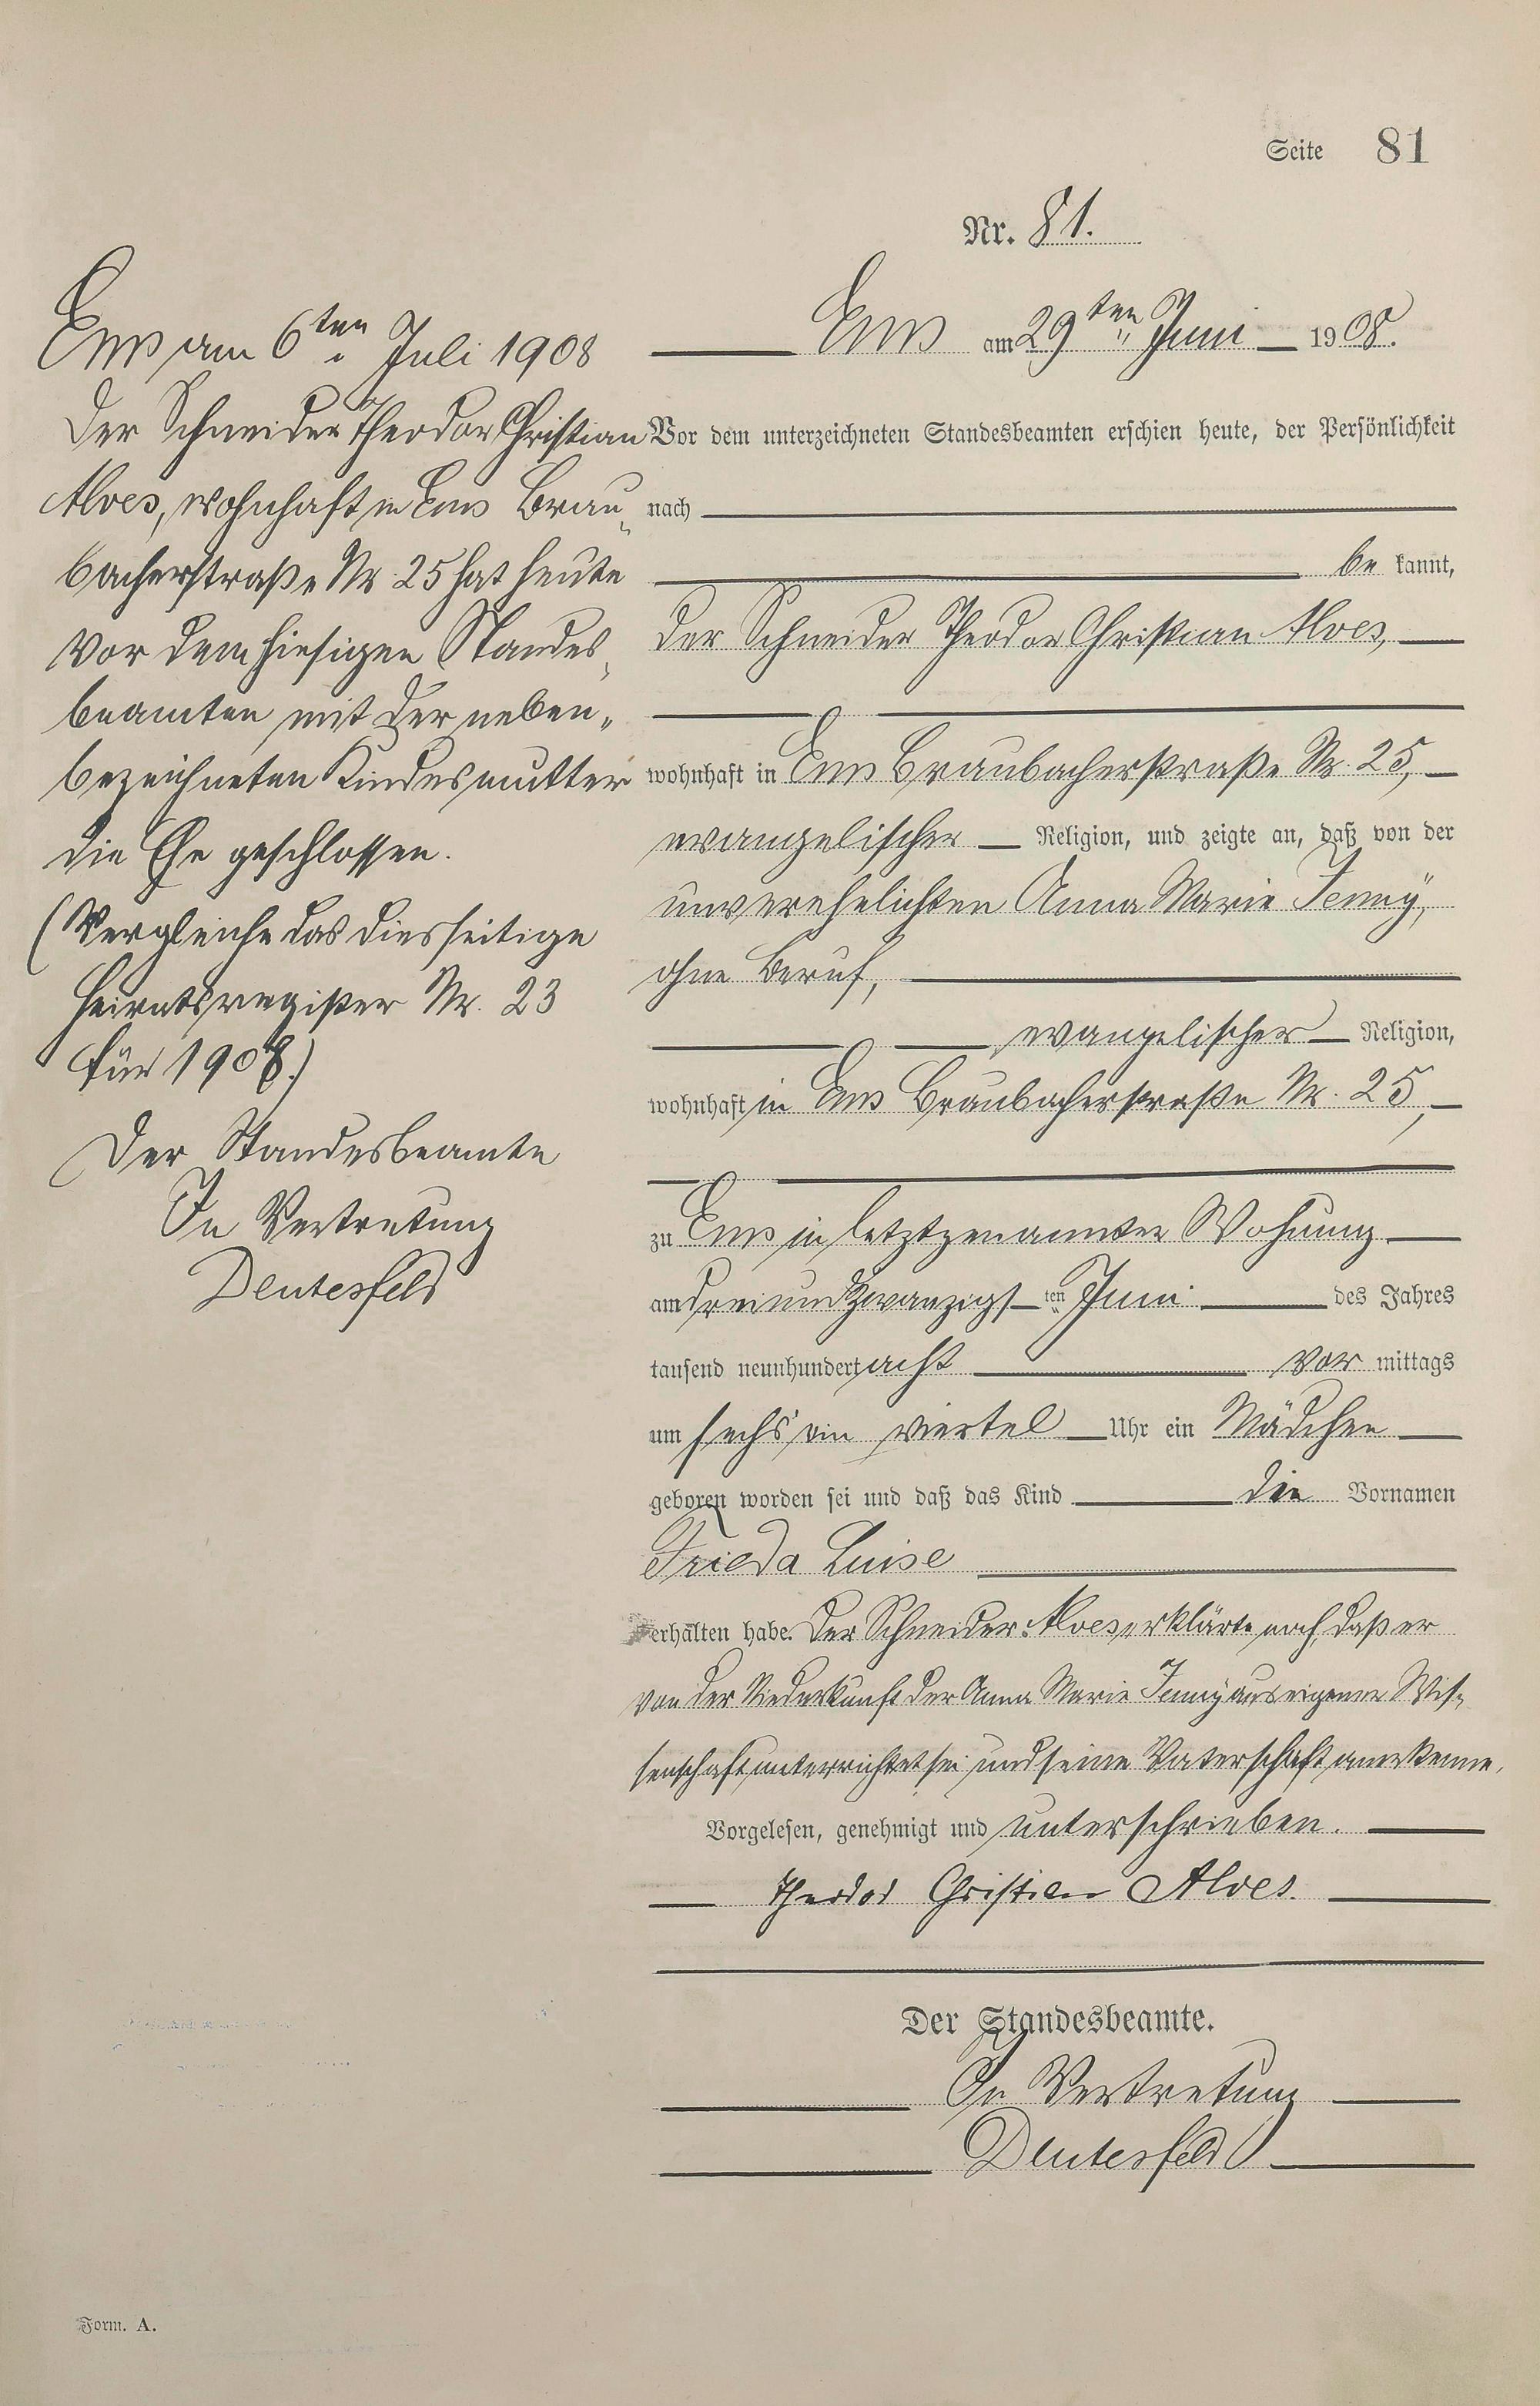 Seite 81
Nr. 81.
Ems am 29ten Juni 1908.
Vor dem unterzeichneten Standesbeamten erschien heute, der Persönlichkeit
nach
be kannt,
der Schneider Theodor Christian Alves,
wohnhaft in Ems Braubacherstraße Nr. 25,
evangelischer Religion, und zeigte an, daß von der
unverehelichten Anna Marie Jenny,
ohne Beruf,
evangelischer Religion,
wohnhaft in Ems Braubacherstraße Nr. 25,
zu Ems in letztgenannter Wohnung
am dreiundzwanzigsten Juni des Jahres
tausend neunhundert acht vor mittags
um sechs ein viertel Uhr ein Mädchen
geboren worden sei und daß das Kind die Vornamen
Frieda Luise
erhalten habe. Der Schneider Alves erklärte noch, daß er
von der Niederkunft der Anna Marie Jenny aus eigener Wis-
senschaft unterrichtet sei und seine Vaterschaft anerkenne.
Vorgelesen, genehmigt und unterschrieben.
Theodor Christian Alves.
Der Standesbeamte.
In Vertretung
Deutesfeld
Ems am 6ten Juli 1908
Der Schneider Theodor Christian
Alves, wohnhaft in Ems Brau-
bacherstraße Nr. 25 hat heute
vor dem hiesigen Standes-
beamten mit der neben-
bezeichneten Kindesmutter
die Ehe geschlossen.
(Vergleiche das diesseitige
Heiratsregister Nr. 23
für 1908.)
Der Standesbeamte
In Vertretung
Deutesfeld
Form. A.